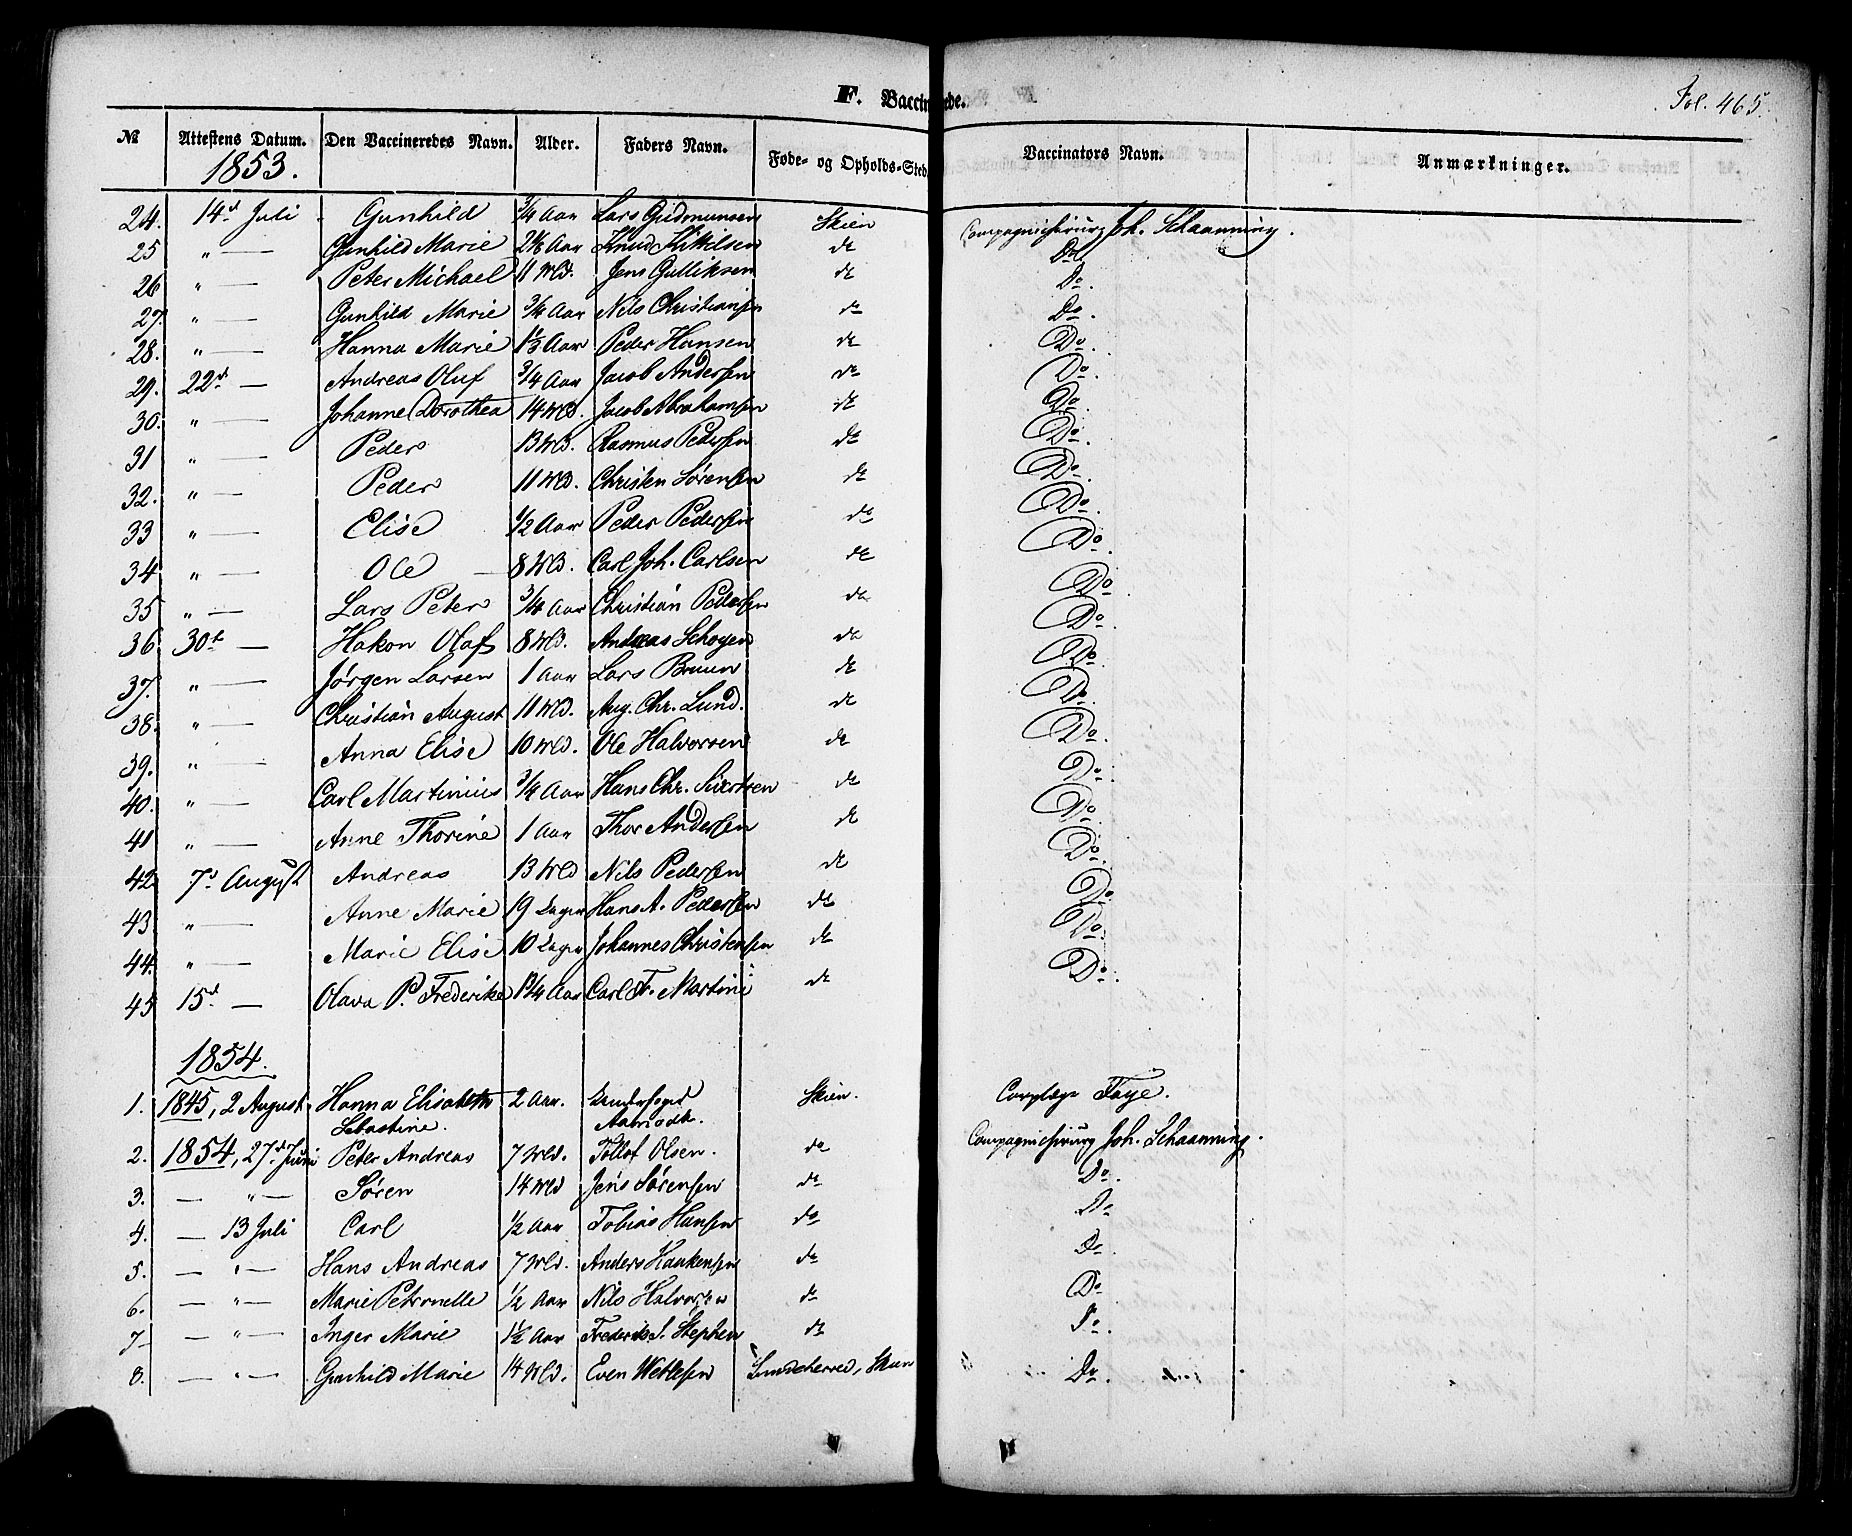 F. Vaccinerede.
Fol. 465.
№ Attestens Datum. Den Vaccineredes Navn. Alder. Faders Navn. Føde- og Opholds-Sted Vaccinators Navn. Anmærkninger.
1853.
24. 14d Juli Gunhild 3/4 Aar Lars Gudmunsen Skien Compagnichirurg Joh. Schaanning.
25 " — Gunhild Marie Aar Knud Kittilsen do Do.
26 " — Peter Michael 11 Uld. Jens Gulliksen do Do.
27. " — Gunhild Marie 3/4 Aar Nils Christiansen do Do.
28. " — Hanna Marie 1 1/3 Aar Peder Hansen do Do.
29. 22d — Andreas Oluf 3/4 Aar Jacob Andersen do Do.
30. " — Johanne Dorothea 14 Uld. Jacob Abrahamsen do Do.
31 " — Peder 13 Uld. Rasmus Pedersen do Do.
32. " — Peder 11 Uld. Christen Sørensen do Do.
33 " — Elise 1/2 Aar Peder Pedersen do Do.
34 " — Ole — 8 Uld. Carl Joh. Carlsen do Do.
35 " — Lars Peter 3/4 Aar Christian Pedersen do Do.
36 30t — Hakon Olaf 8 Uld. Andreas Schoyen do Do.
37. " — Jørgen Larsen 1 Aar Lars Bruun do Do.
38. " — Christian August 11 Uld. Aug. Chr. Lund. do Do.
39. " — Anna Elise 10 Uld. Ole Halvorsen do Do.
40. " — Carl Martinius 3/4 Aar Hans Chr. Sivertsen do Do.
41 " — Anne Thorine 1 Aar Thor Andersen do Do.
42 7d August Andreas 13 Uld Nils Pedersen do Do.
43. " — Anne Marie 19 Dager Hans A. Pedersen do Do.
44. " — Marie Elise 10 Dager Johannes Christensen do Do.
45 15d — Olava P. Frederike 1 1/4 Aar Carl F. Martini do Do.
1854.
1. 1845, 2 August Hanna Elisabeth 2 Aar. Skien. Corpslæge Faye.
Sebastine.
2. 1854, 27d Juni Peter Andreas 7 Uld. Tollof Olsen. do Compagnichirurg Joh. Schaanning.
3. — " — Søren 14 Uld Jens Sørensen do Do.
4. — 13 Juli Carl 1/2 Aar Tobias Hansen do Do.
5. — " — Hans Andreas 7 Uld. Anders Haakensen do Do.
6. — " — Marie Petronelle 1/2 Aar Nils Halvorsen do Do.
7 — " — Inger Marie 1 1/2 Aar Frederik S. Stephen do Do.
8. — " — Gunhild Marie 14 Uld. Even Wetlesen Lundeherred, Skien Do.